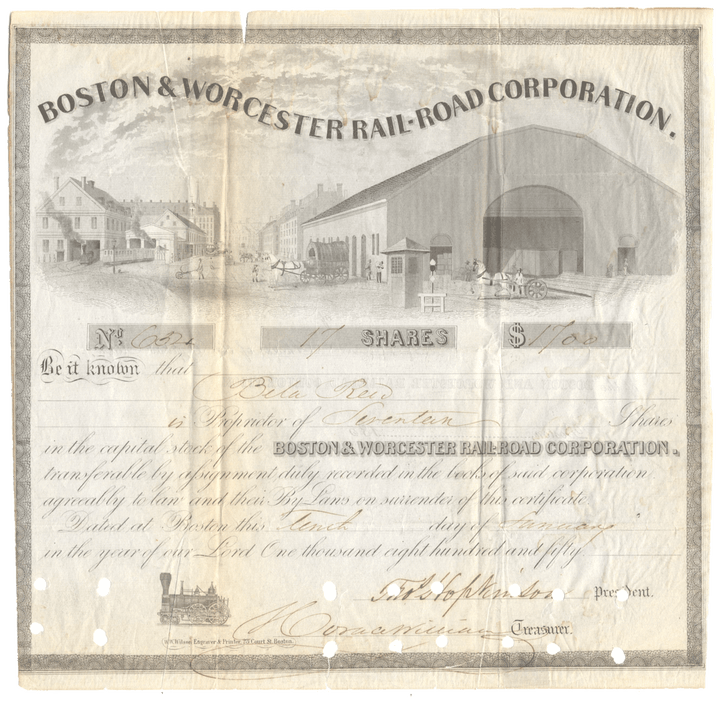 BOSTON & WORCESTER RAIL-ROAD CORPORATION.
No. 17 SHARES $1700
Be it known that
Bela Reed
is Proprietor of Seventeen Shares
in the capital stock of the BOSTON & WORCESTER RAIL-ROAD CORPORATION.
transferable by assignment duly recorded in the books of said corporation
agreeably to law and their By Laws on surrender of this certificate
Dated at Boston this Tenth day of January
in the year of our Lord One thousand eight hundred and fifty
Thos Hopkinson President.
Horace Williams Treasurer.
Engraver & Printer, 75 Court St. Boston.